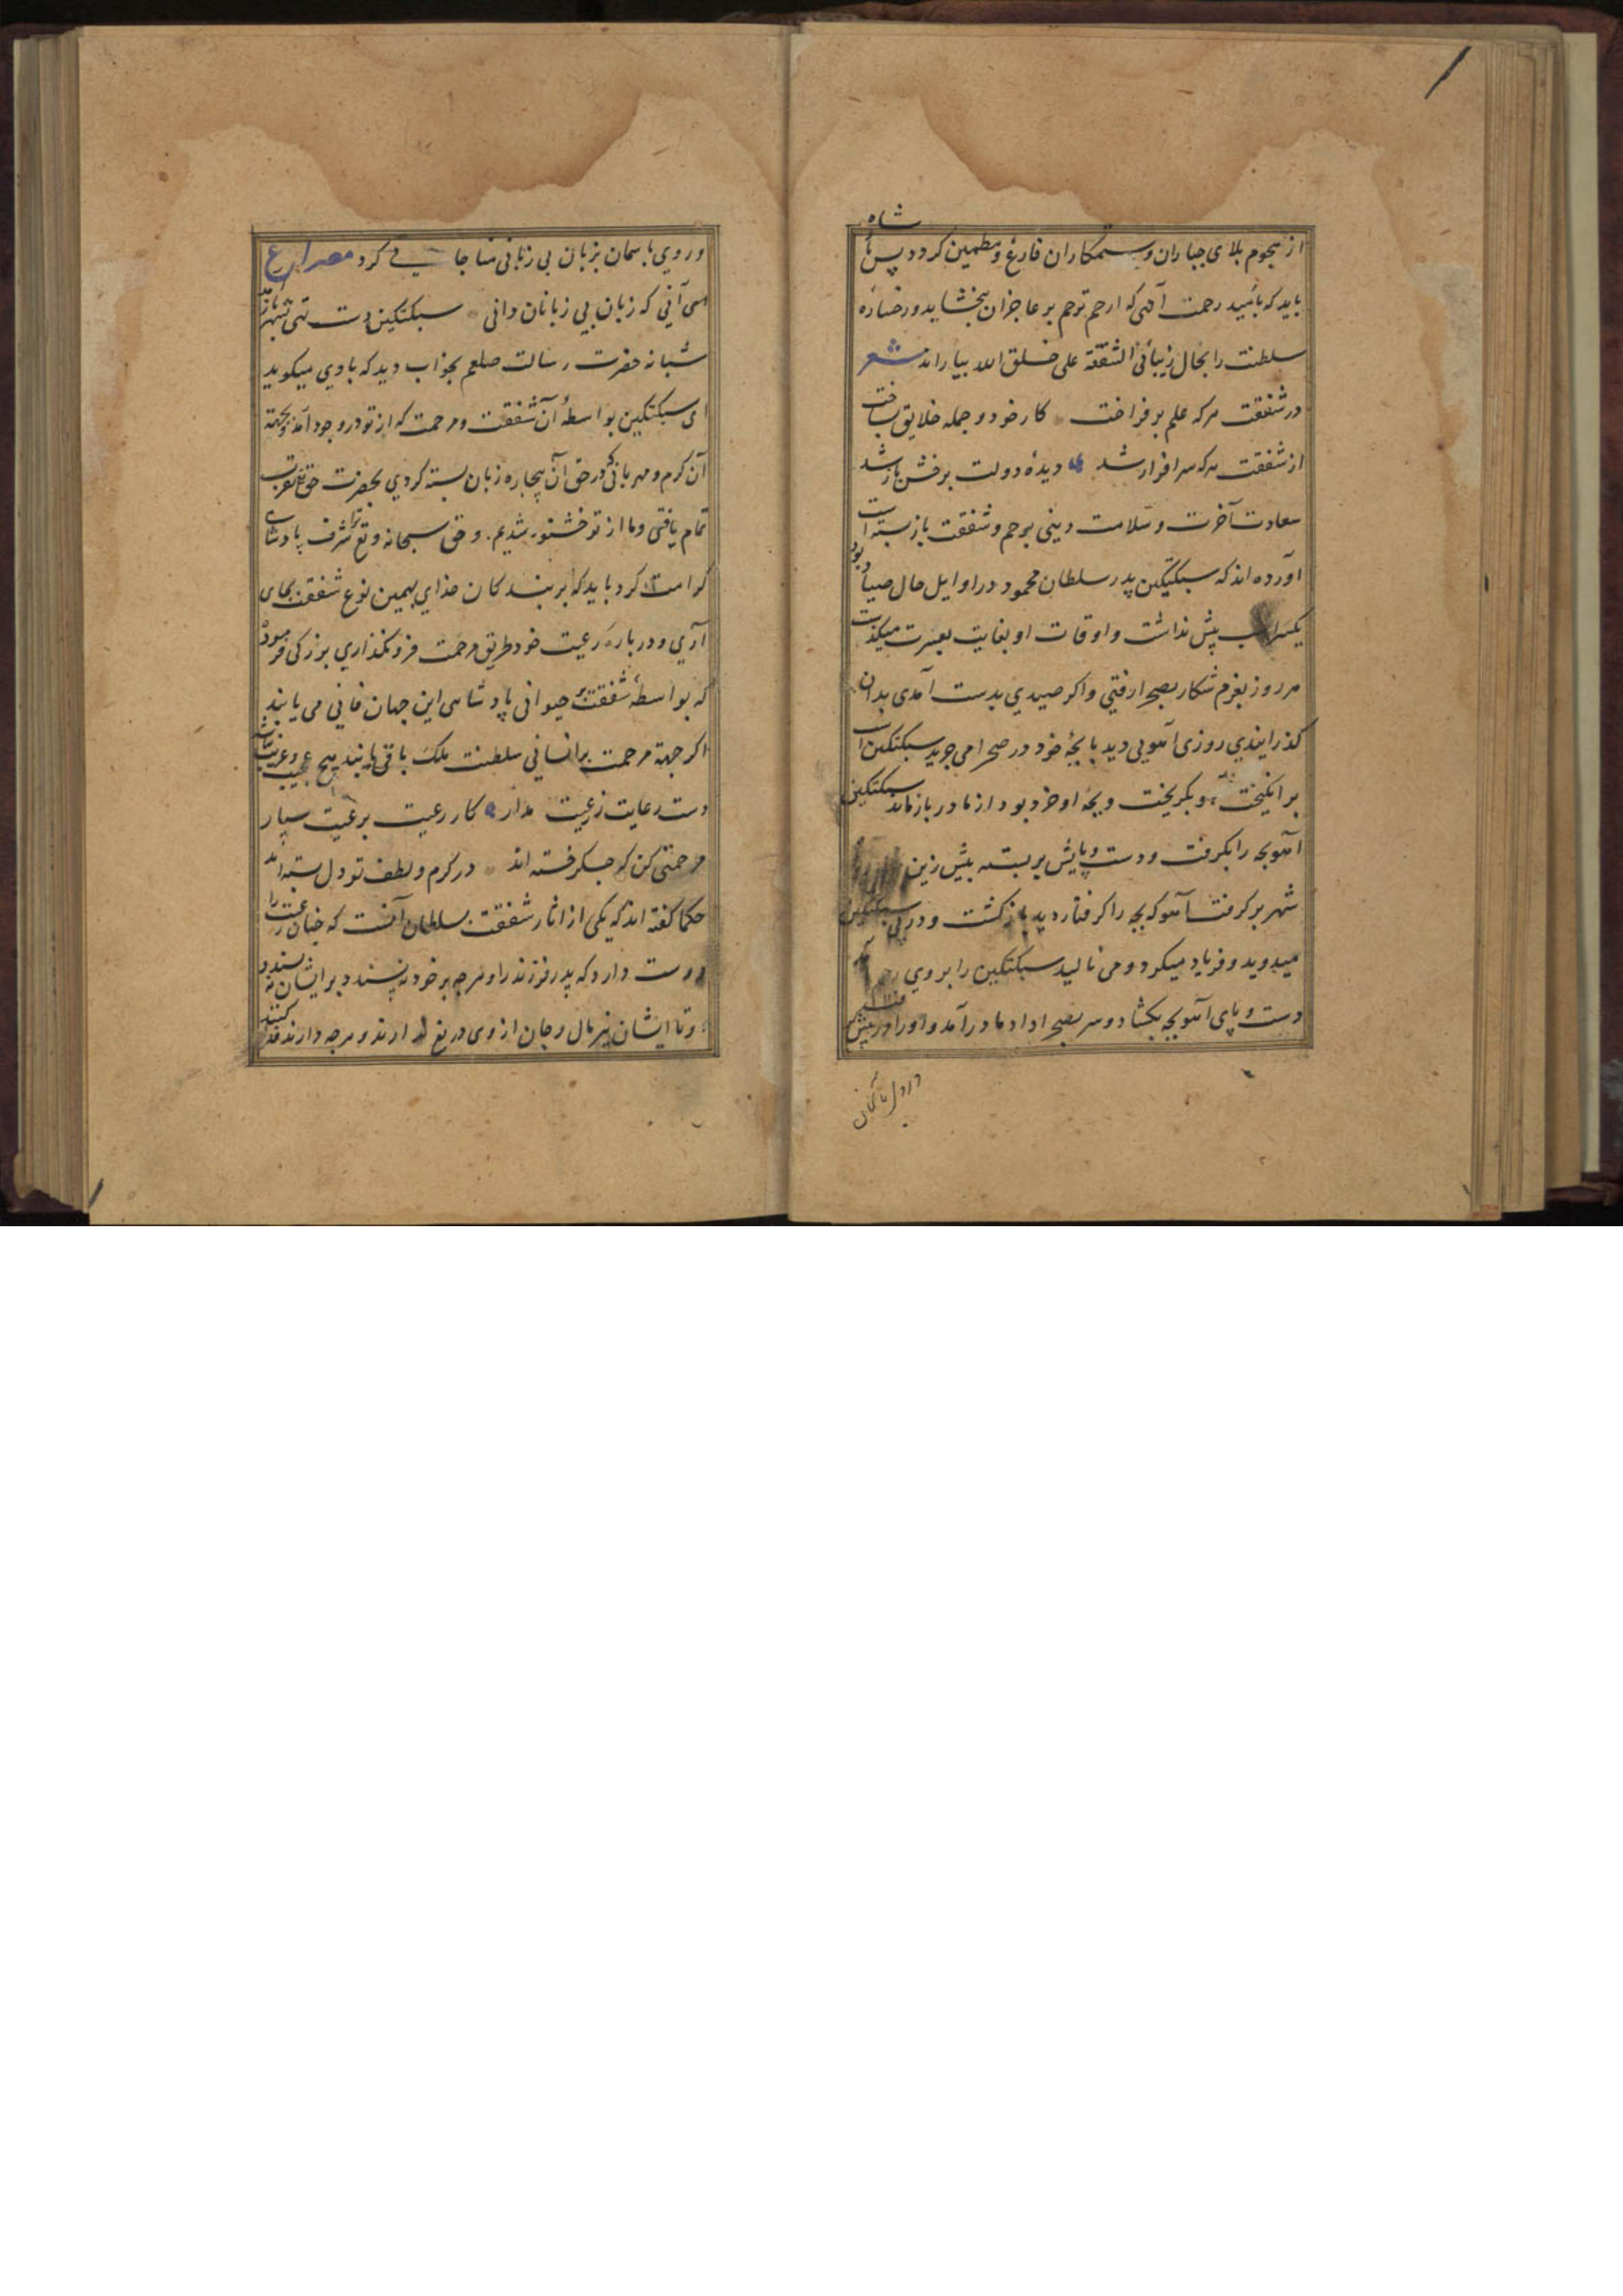 شاه
از هجوم بلای جباران و ستمکاران فارغ و مطمین کردد پس
باید که بامید رحمت آلهی که ارحم ترحم بر عاجزان ببخشاید و رخساره
سلطنت را بخال زیبائی الشفقة علی خلق الله بیاراند شعر
در شفقت هرکه علم برفراخت کار خود و جمله خلایق بساخت
از شفقت هرکه سرافراز شد دیدۀ دولت برخش باز شد
سعادت آخرت و سلامت دینی برحم و شفقت بازبسته است
آورده اند که سبکتکین پدر سلطان محمود در اوایل حال صیاد بود
یکسر اسب بیش نداشت و اوقات او بغایت بعسرت میکذشت
هر روز بعزم شکار بصحرا رفتی و اکر صیدی بدست آمدی بدان
کذرانیدی روزی آهویی دید با بچۀ خود در صحرا می چرید سبکتکین اسب
برانکیخت آهو بکریخت و بچۀ او خرد بود از مادر بازماند سبکتکین
آهوبچه را بکرفت و دست و پایش بربست پیش زین
شهر برکرفت آهو که بچه را کرفتار دید بازکشت و در پی سبکتکین
میدوید و فریاد میکرد و می نالید سبکتکین را بر وی رحم آمد
دست و پای آهوبچه بکشاد و سر بصحرا داد مادر آمد و او را در پیش
و روی باسمان بزبان بی زبانی مناجاتی می کرد مصراع
ای آنی که زبان بی زبانان دانی سبکتکین دست تهی بشهر باز آمد
شبانه حضرت رسالت صلعم بخواب دید که با وی میکوید
ای سبکتکین بواسطۀ آن شفقت و مرحمت که از تو در وجود آمد و بجهة
آن کرم و مهربانی که در حق آن بیچاره زبان بسته کردی بحضرت حق تعالی تقرب
تمام یافتی و ما از تو خشنود شدیم و حق سبحانه و تع ترا شرف پادشاهی
کرامت کرد باید که بر بندکان خدای بهمین نوع شفقت بجای
آری و در باره رعیت خود طریق مرحمت فرونکذاری بزرکی فرموده
که بواسطۀ شفقت بر حیوانی پادشاهی این جهان فانی می یابند
اکر جهة مرحمت بر انسانی سلطنت ملک باقی یابند هیچ عجیب و غریب نباشد
دست رعایت ز رعیت مدار کار رعیت برعیت سپار
مرحمتی کن که جکرخسته اند در کرم و لطف تو دل بسته اند
حکما کفته اند که یکی از آثار شفقت سلطان آنست که چنان رعیت را
دوست دارد که پدر فرزند را و هرچه بر خود نپسندد بر ایشان نپسندد
و تا ایشان نیز مال و جان از وی دریغ ندارند و هرچه دارند فدا کنند